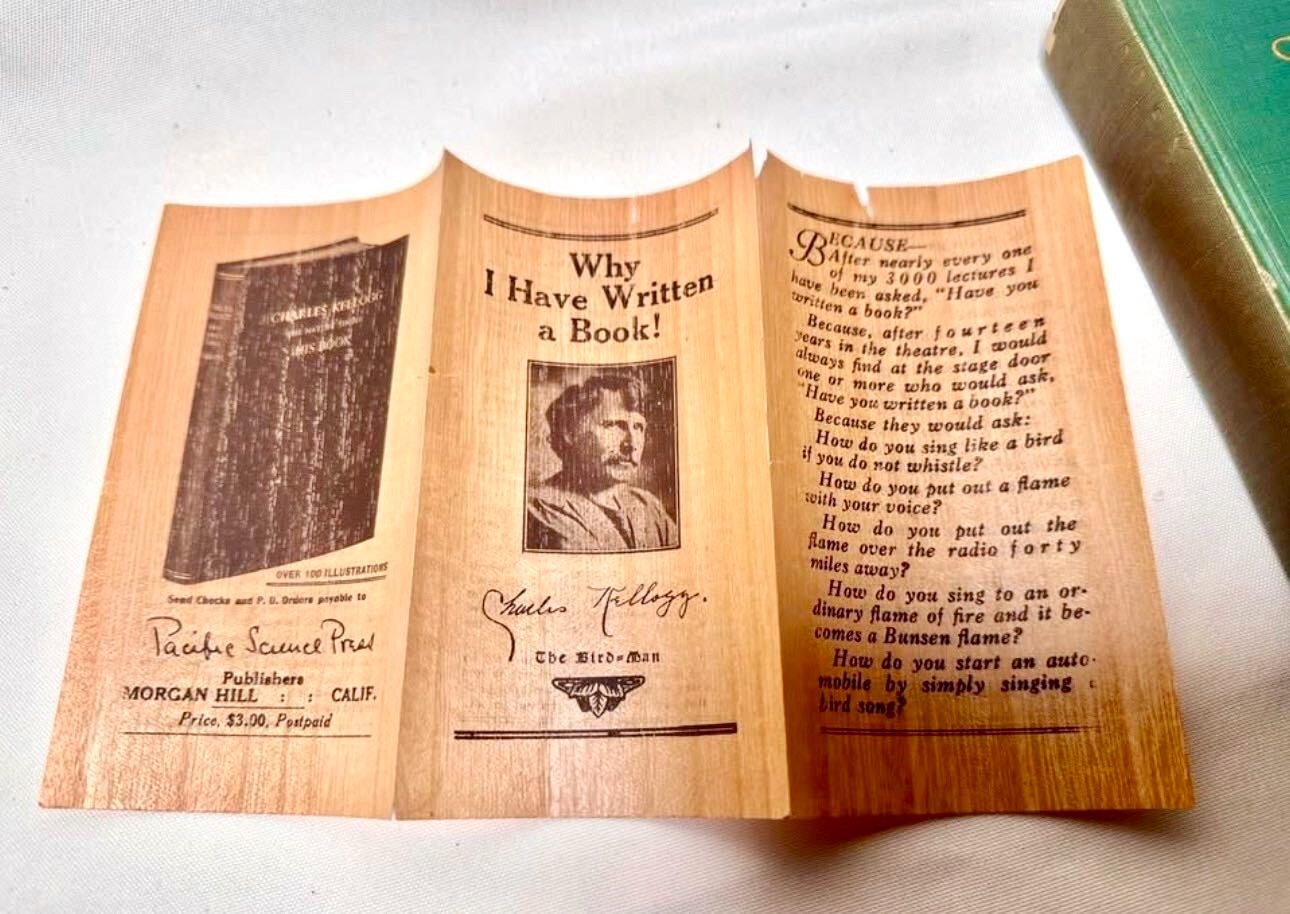 CHARLES KELLOGG
THE NATURE SINGER
HIS BOOK
OVER 100 ILLUSTRATIONS
Send Checks and P. O. Orders payable to
Pacific Science Press
Publishers
MORGAN HILL : : CALIF.
Price, $3.00, Postpaid
Why
I Have Written
a Book!
Charles Kellogg.
The Bird=Man
BECAUSE—
After nearly every one
of my 3000 lectures I
have been asked, "Have you
written a book?"
Because, after fourteen
years in the theatre, I would
always find at the stage door
one or more who would ask,
"Have you written a book?"
Because they would ask:
How do you sing like a bird
if you do not whistle?
How do you put out a flame
with your voice?
How do you put out the
flame over the radio forty
miles away?
How do you sing to an or-
dinary flame of fire and it be-
comes a Bunsen flame?
How do you start an auto-
mobile by simply singing
bird song?